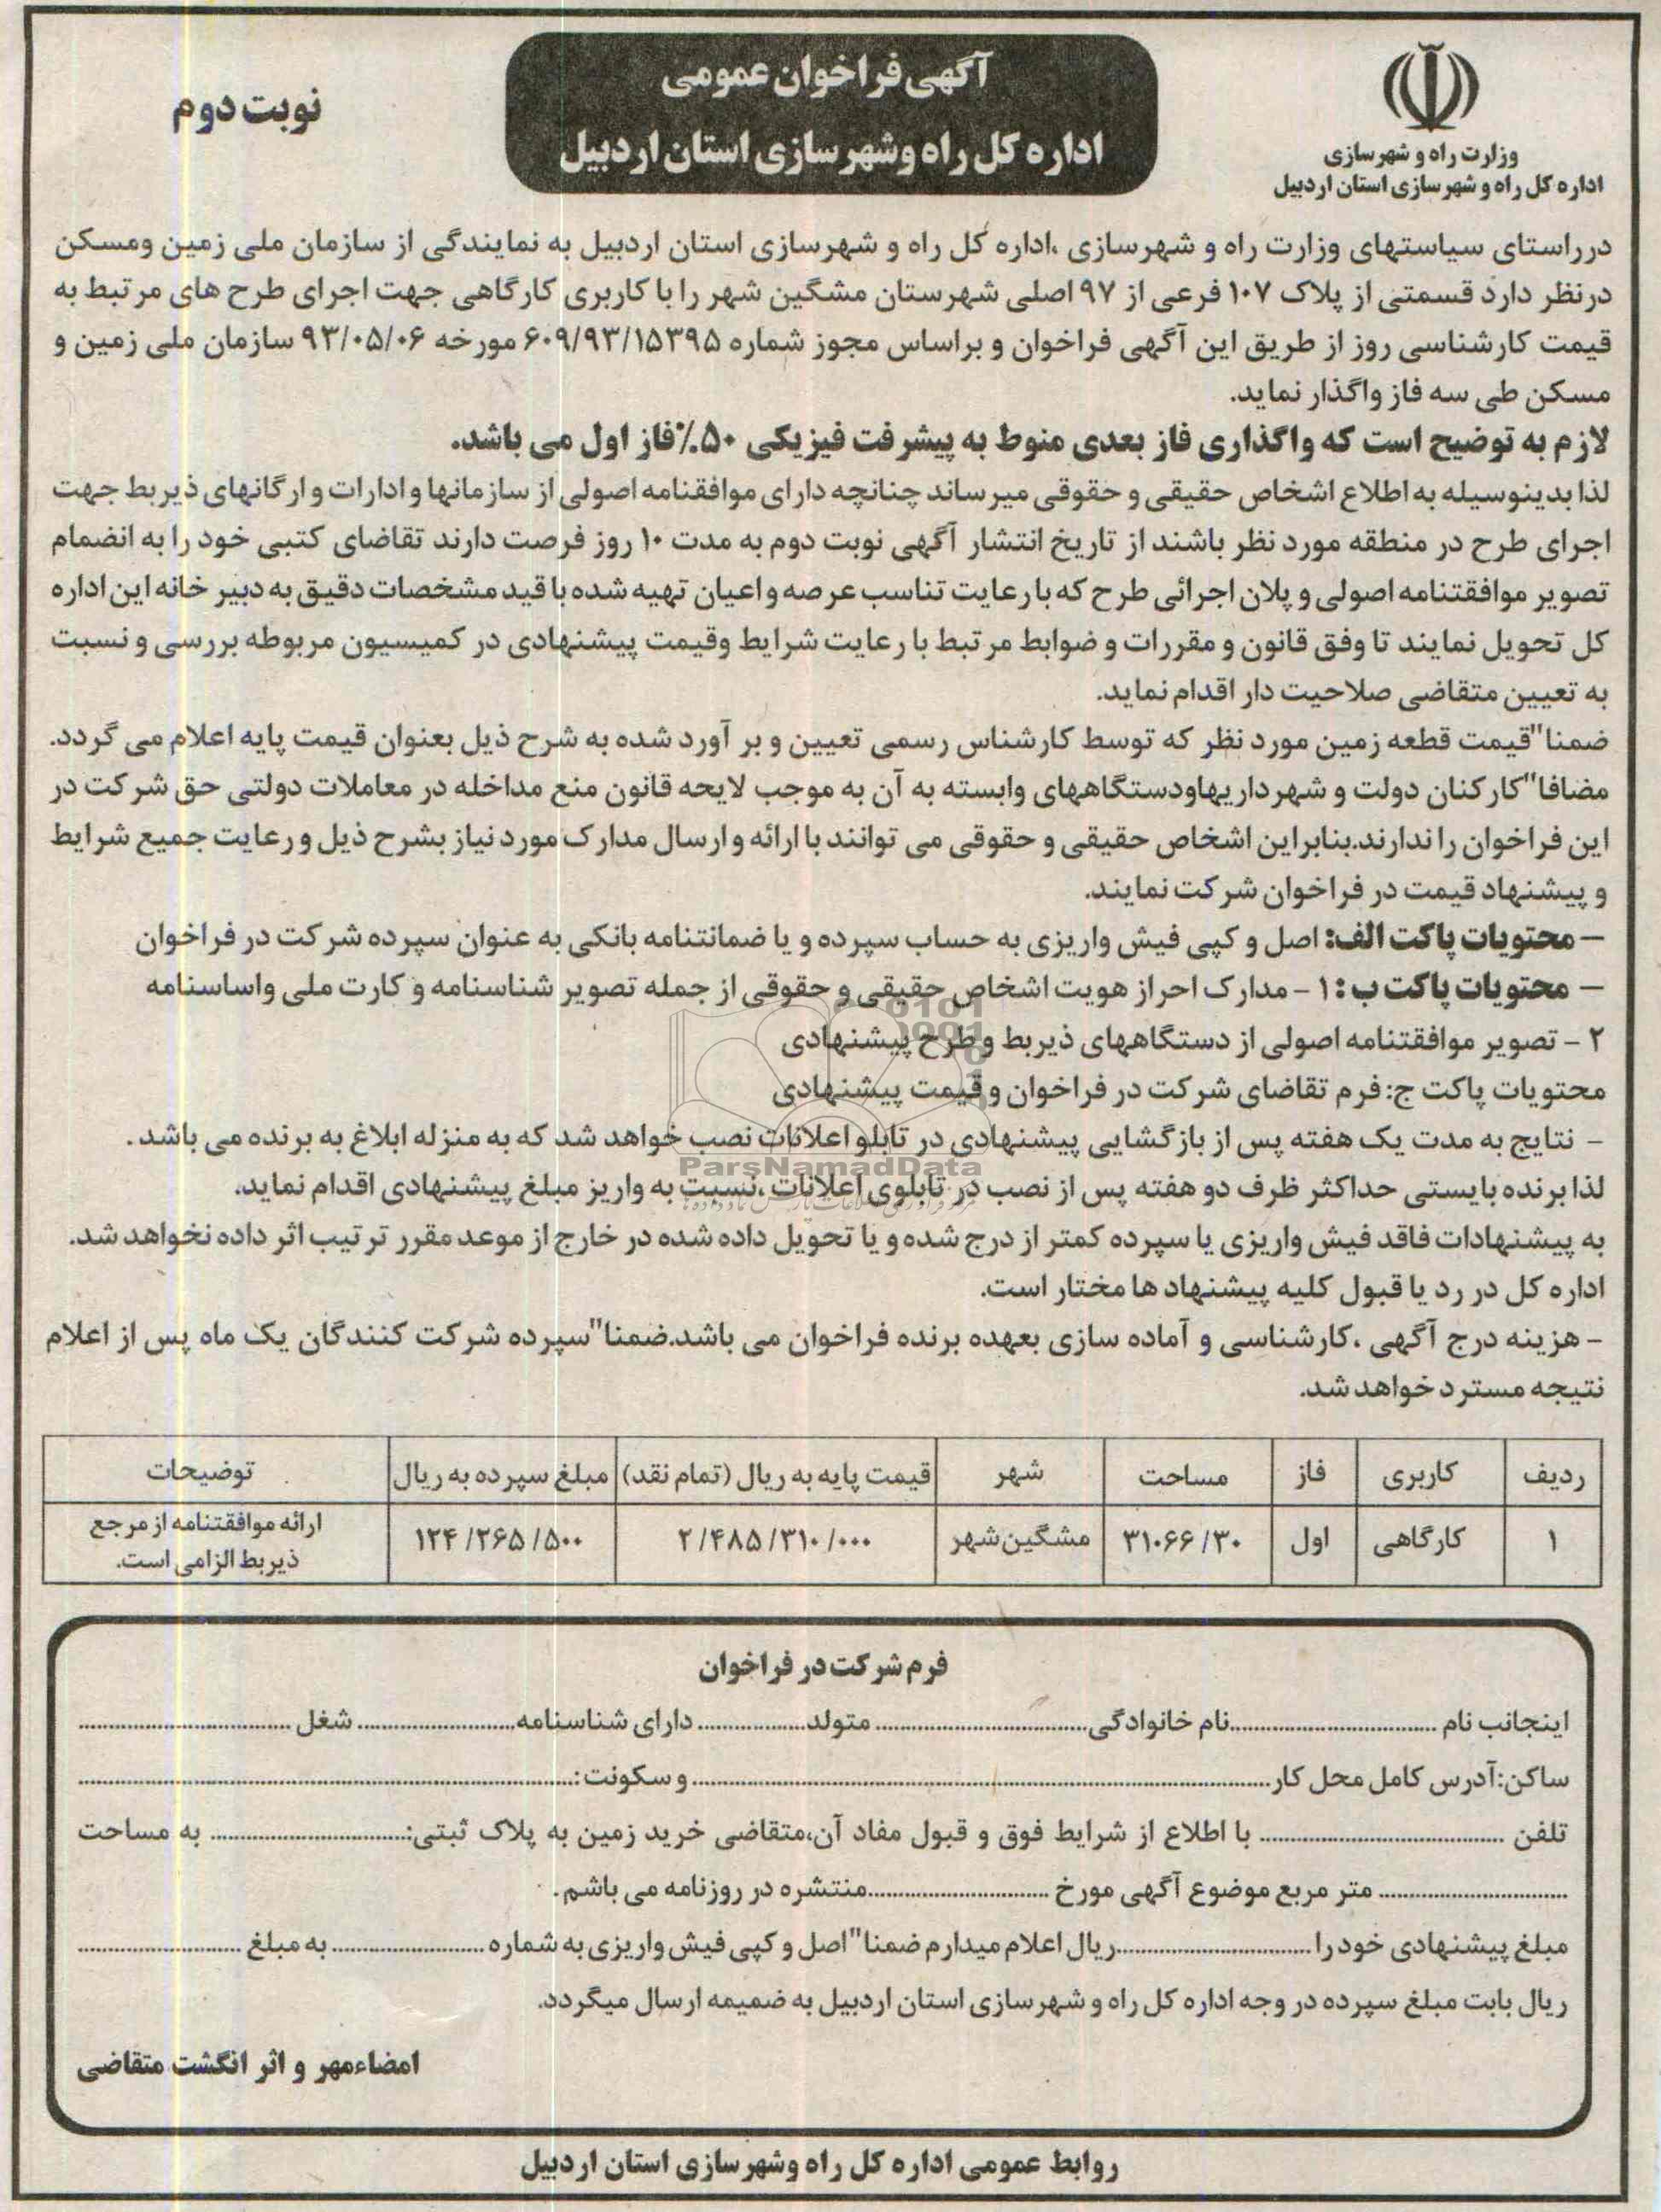 وزارت راه و شهرسازی
اداره کل راه و شهرسازی استان اردبیل
آگهی فراخوان عمومی
اداره کل راه وشهرسازی استان اردبیل
نوبت دوم
درراستای سیاستهای وزارت راه و شهرسازی ،اداره کل راه و شهرسازی استان اردبیل به نمایندگی از سازمان ملی زمین ومسکن
درنظر دارد قسمتی از پلاک ۱۰۷ فرعی از ۹۷ اصلی شهرستان مشگین شهر را با کاربری کارگاهی جهت اجرای طرح های مرتبط به
قیمت کارشناسی روز از طریق این آگهی فراخوان و براساس مجوز شماره ۶۰۹/۹۳/۱۵۳۹۵ مورخه ۹۳/۰۵/۰۶ سازمان ملی زمین و
مسکن طی سه فاز واگذار نماید.
لازم به توضیح است که واگذاری فاز بعدی منوط به پیشرفت فیزیکی ۵۰٪ فاز اول می باشد.
لذا بدینوسیله به اطلاع اشخاص حقیقی و حقوقی میرساند چنانچه دارای موافقنامه اصولی از سازمانها و ادارات و ارگانهای ذیربط جهت
اجرای طرح در منطقه مورد نظر باشند از تاریخ انتشار آگهی نوبت دوم به مدت ۱۰ روز فرصت دارند تقاضای کتبی خود را به انضمام
تصویر موافقتنامه اصولی و پلان اجرائی طرح که با رعایت تناسب عرصه و اعیان تهیه شده با قید مشخصات دقیق به دبیر خانه این اداره
کل تحویل نمایند تا وفق قانون و مقررات و ضوابط مرتبط با رعایت شرایط وقیمت پیشنهادی در کمیسیون مربوطه بررسی و نسبت
به تعیین متقاضی صلاحیت دار اقدام نماید.
ضمنا"قیمت قطعه زمین مورد نظر که توسط کارشناس رسمی تعیین و بر آورد شده به شرح ذیل بعنوان قیمت پایه اعلام می گردد.
مضافا"کارکنان دولت و شهرداریهاودستگاههای وابسته به آن به موجب لایحه قانون منع مداخله در معاملات دولتی حق شرکت در
این فراخوان را ندارند.بنابراین اشخاص حقیقی و حقوقی می توانند با ارائه و ارسال مدارک مورد نیاز بشرح ذیل و رعایت جمیع شرایط
و پیشنهاد قیمت در فراخوان شرکت نمایند.
– محتویات پاکت الف: اصل و کپی فیش واریزی به حساب سپرده و یا ضمانتنامه بانکی به عنوان سپرده شرکت در فراخوان
– محتویات پاکت ب : ۱ – مدارک احراز هویت اشخاص حقیقی و حقوقی از جمله تصویر شناسنامه و کارت ملی واساسنامه
۲ – تصویر موافقتنامه اصولی از دستگاههای ذیربط و طرح پیشنهادی
محتویات پاکت ج: فرم تقاضای شرکت در فراخوان و قیمت پیشنهادی
– نتایج به مدت یک هفته پس از بازگشایی پیشنهادی در تابلو اعلانات نصب خواهد شد که به منزله ابلاغ به برنده می باشد .
ParsNamadData
لذا برنده بایستی حداکثر ظرف دو هفته پس از نصب در تابلوی اعلانات ،نسبت به واریز مبلغ پیشنهادی اقدام نماید.
به پیشنهادات فاقد فیش واریزی یا سپرده کمتر از درج شده و یا تحویل داده شده در خارج از موعد مقرر ترتیب اثر داده نخواهد شد.
اداره کل در رد یا قبول کلیه پیشنهاد ها مختار است.
– هزینه درج آگهی ،کارشناسی و آماده سازی بعهده برنده فراخوان می باشد.ضمنا"سپرده شرکت کنندگان یک ماه پس از اعلام
نتیجه مسترد خواهد شد.
ردیف کاربری فاز مساحت شهر قیمت پایه به ریال (تمام نقد) مبلغ سپرده به ریال توضیحات
۱ کارگاهی اول ۳۱۰۶۶/۳۰ مشگین شهر ۲/۴۸۵/۳۱۰/۰۰۰ ۱۲۴/۲۶۵/۵۰۰ ارائه موافقتنامه از مرجع
ذیربط الزامی است.
فرم شرکت در فراخوان
اینجانب نام ..............................نام خانوادگی.............................. متولد.................. دارای شناسنامه...................... شغل ..............................
ساکن:آدرس کامل محل کار............................................................ و سکونت:............................................................
تلفن .............................. با اطلاع از شرایط فوق و قبول مفاد آن،متقاضی خرید زمین به پلاک ثبتی:.............................. به مساحت
.............................. متر مربع موضوع آگهی مورخ ..............................منتشره در روزنامه می باشم .
مبلغ پیشنهادی خود را ..............................ریال اعلام میدارم ضمنا"اصل و کپی فیش واریزی به شماره ...................... به مبلغ ......................
ریال بابت مبلغ سپرده در وجه اداره کل راه و شهرسازی استان اردبیل به ضمیمه ارسال میگردد.
امضاءمهر و اثر انگشت متقاضی
روابط عمومی اداره کل راه وشهرسازی استان اردبیل